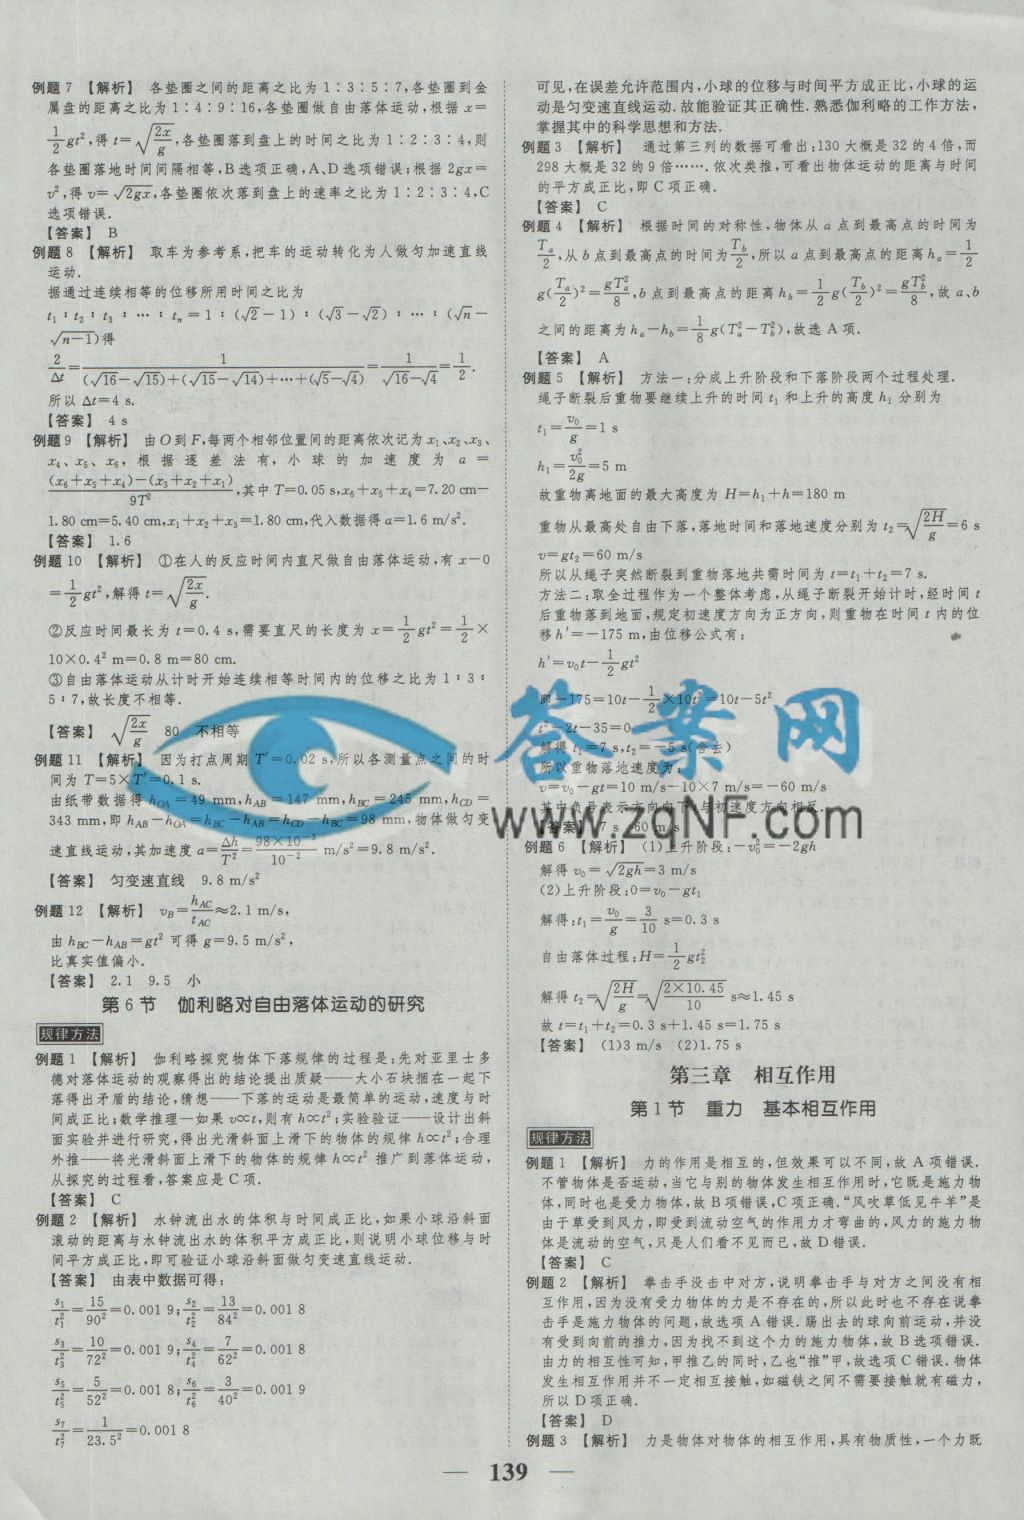 例题7 【解析】 各垫圈之间的距离之比为1∶3∶5∶7,各垫圈到金
属盘的距离之比为1∶4∶9∶16,各垫圈做自由落体运动,根据x=
1/2 gt²,得t=√(2x/g),各垫圈落到盘上的时间之比为1∶2∶3∶4,则
各垫圈落地时间间隔相等,B选项正确,A、D选项错误;根据2gx=
v²,得v=√(2gx),各垫圈依次落到盘上的速率之比为1∶2∶3∶4,C
选项错误.
【答案】 B
例题8 【解析】 取车为参考系,把车的运动转化为人做匀加速直线
运动.
据通过连续相等的位移所用时间之比为
t₁∶t₂∶t₃∶…∶tₙ=1∶(√2-1)∶(√3-√2)∶…∶(√n-
√(n-1))得
2/Δt=1/((√16-√15)+(√15-√14)+…+(√5-√4))=1/(√16-√4)=1/2.
所以Δt=4 s.
【答案】 4 s
例题9 【解析】 由O到F,每两个相邻位置间的距离依次记为x₁、x₂、x₃、
x₄、x₅、x₆,根据逐差法有,小球的加速度为a=
((x₆+x₅+x₄)-(x₃+x₂+x₁))/9T²,其中T=0.05 s,x₆+x₅+x₄=7.20 cm-
1.80 cm=5.40 cm,x₁+x₂+x₃=1.80 cm,代入数据得a=1.6 m/s².
【答案】 1.6
例题10 【解析】 ①在人的反应时间内直尺做自由落体运动,有x-0
=1/2 gt²,解得t=√(2x/g).
②反应时间最长为t=0.4 s,需要直尺的长度为x=1/2 gt²=1/2×
10×0.4² m=0.8 m=80 cm.
③自由落体运动从计时开始连续相等时间内的位移之比为1∶3∶
5∶7,故长度不相等.
【答案】 √(2x/g) 80 不相等
例题11 【解析】 因为打点周期T′=0.02 s,所以各测量点之间的时
间为T=5×T′=0.1 s.
由纸带数据得h_OA=49 mm,h_AB=147 mm,h_BC=245 mm,h_CD=
343 mm,即h_AB-h_OA=h_BC-h_AB=h_CD-h_BC=98 mm,物体做匀变
速直线运动,其加速度a=Δh/T²=98×10⁻³/10⁻² m/s²=9.8 m/s².
【答案】 匀变速直线 9.8 m/s²
例题12 【解析】 v_B=h_AC/t_AC≈2.1 m/s,
由h_BC-h_AB=gt²可得g=9.5 m/s²,
比真实值偏小.
【答案】 2.1 9.5 小
第6节 伽利略对自由落体运动的研究
规律方法
例题1 【解析】 伽利略探究物体下落规律的过程是:先对亚里士多
德对落体运动的观察得出的结论提出质疑——大小石块捆在一起下
落得出矛盾的结论,猜想——下落的运动是最简单的运动,速度与时
间成正比;数学推理—如果v∝t,则有h∝t²;实验验证——设计出斜
面实验并进行研究,得出光滑斜面上滑下的物体的规律h∝t²;合理
外推——将光滑斜面上滑下的物体的规律h∝t²推广到落体运动,
从探究的过程看,答案应是C项.
【答案】 C
例题2 【解析】 水钟流出水的体积与时间成正比,如果小球沿斜面
滚动的距离与水钟流出水的体积平方成正比,则说明小球位移与时
间平方成正比,即可验证小球沿斜面做匀变速直线运动.
【答案】 由表中数据可得:
s₁/t₁²=15/90²=0.001 9;s₂/t₂²=13/84²=0.001 8
s₃/t₃²=10/72²=0.001 9;s₄/t₄²=7/62²=0.001 8
s₅/t₅²=5/52²=0.001 8;s₆/t₆²=3/40²=0.001 9
s₇/t₇²=1/23.5²=0.001 8
可见,在误差允许范围内,小球的位移与时间平方成正比,小球的运
动是匀变速直线运动.故能验证其正确性.熟悉伽利略的工作方法,
掌握其中的科学思想和方法.
例题3 【解析】 通过第三列的数据可看出:130大概是32的4倍,而
298大概是32的9倍……,依次类推,可看出物体运动的距离与时间
的平方成正比,即C项正确.
【答案】 C
例题4 【解析】 根据时间的对称性,物体从a点到最高点的时间为
Tₐ/2,从b点到最高点的时间为T_b/2,所以a点到最高点的距离hₐ=1/2
g(Tₐ/2)²=gTₐ²/8,b点到最高点的距离h_b=1/2 g(T_b/2)²=gT_b²/8,故a、b
之间的距离为hₐ-h_b=1/8 g(Tₐ²-T_b²),故选A项.
【答案】 A
例题5 【解析】 方法一:分成上升阶段和下落阶段两个过程处理.
绳子断裂后重物要继续上升的时间t₁和上升的高度h₁分别为
t₁=v₀/g=1 s
h₁=v₀²/2g=5 m
故重物离地面的最大高度为H=h₁+h=180 m
重物从最高处自由下落,落地时间和落地速度分别为t₂=√(2H/g)=6 s
v=gt₂=60 m/s
所以从绳子突然断裂到重物落地共需时间为t=t₁+t₂=7 s.
方法二:取全过程作为一个整体考虑,从绳子断裂开始计时,经时间t
后重物落到地面,规定初速度方向为正方向,则重物在时间t内的位
移h′=-175 m,由位移公式有:
h′=v₀t-1/2 gt²
即-175=10t-1/2×10t²=10t-5t²
t²-2t-35=0
解得t₁=7 s,t₂=-5 s(舍去)
所以重物落地速度为:
v=v₀-gt=10 m/s-10×7 m/s=-60 m/s
其中负号表示方向向下,与初速度方向相反.
【答案】 7 s 60 m/s
例题6 【解析】 (1)上升阶段:-v₀²=-2gh
解得v₀=√(2gh)=3 m/s
(2)上升阶段:0=v₀-gt₁
解得:t₁=v₀/g=3/10 s=0.3 s
自由落体过程:H=1/2 gt₂²
解得t₂=√(2H/g)=√(2×10.45/10) s≈1.45 s
故t=t₁+t₂=0.3 s+1.45 s=1.75 s
【答案】 (1)3 m/s (2)1.75 s
第三章 相互作用
第1节 重力 基本相互作用
规律方法
例题1 【解析】 力的作用是相互的,但效果可以不同,故A项错误.
不管物体是否运动,当它与别的物体发生相互作用时,它既是施力物
体,同时也是受力物体,故B项错误,C项正确.“风吹草低见牛羊”是
由于草受到风力,即受到流动空气的作用力才弯曲的,风力的施力物
体是流动的空气,只是人们看不见而已,故D错误.
【答案】 C
例题2 【解析】 拳击手没击中对方,说明拳击手与对方之间没有相
互作用,因为没有受力物体的力是不存在的,所以此时也不存在说拳
击手是施力物体的问题,故选项A错误.踢出去的球向前运动,并没
有受到向前的推力,因为找不到这个力的施力物体,故B选项错误.
由力的相互性可知,甲推乙的同时,乙也“推”甲,故选项C错误.物体
发生相互作用并不一定相互接触,如磁铁之间不需要接触就有磁力,
所以D项正确.
【答案】 D
例题3 【解析】 力是物体对物体的相互作用,具有物质性,一个力既
— 139 —
答案网
www.zqNF.com